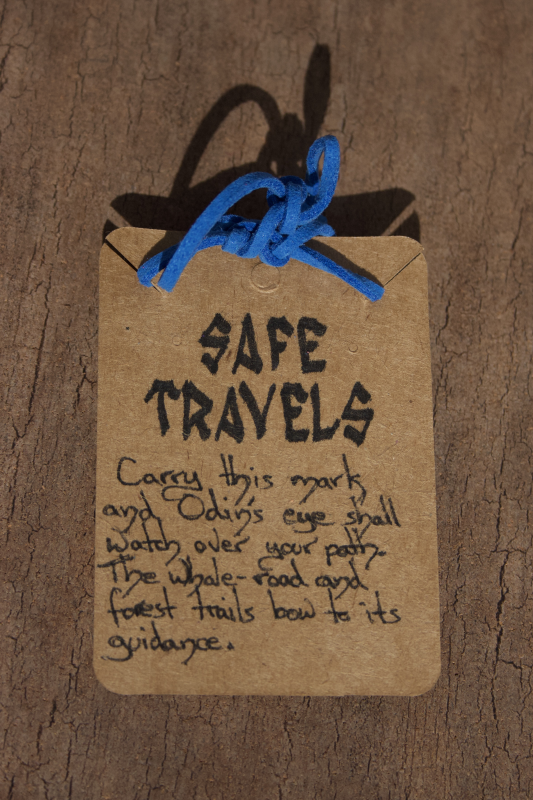 SAFE
TRAVELS
Carry this mark
and Odin's eye shall
watch over your path.
The whale-road and
forest trails bow to its
guidance.